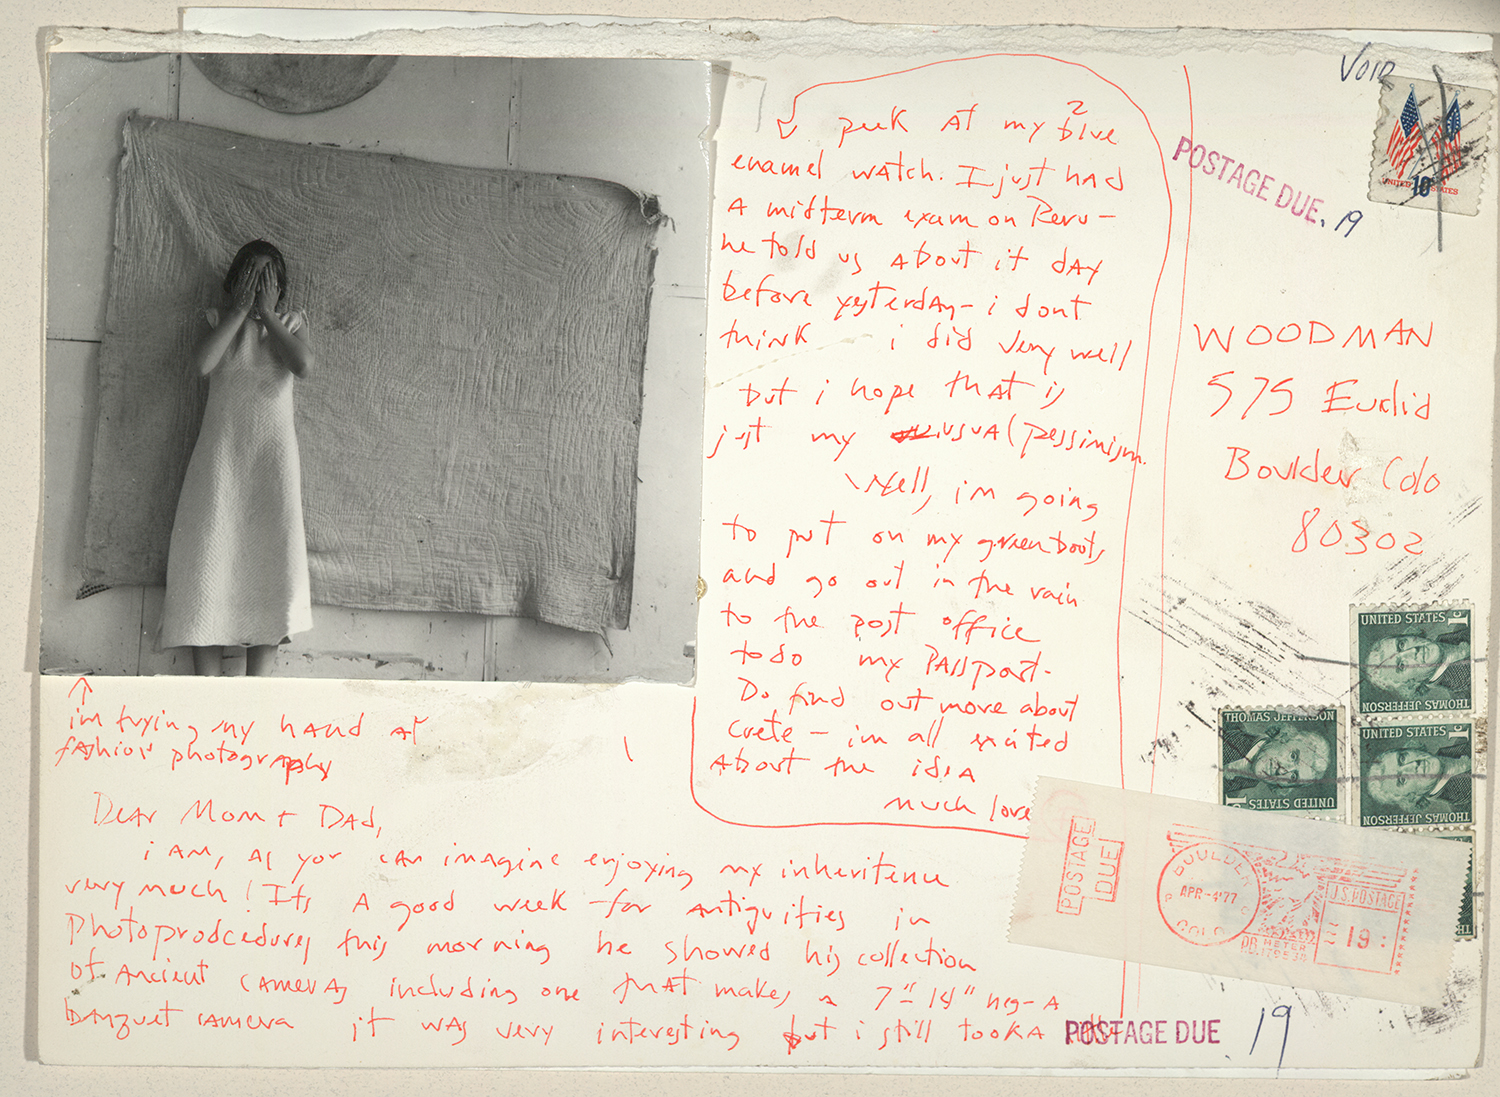 ↑
im trying my hand at
fashion photography
Dear Mom + Dad,
i am, as you can imagine enjoying my inheritence
very much! Its a good week for antiquities in
Photoprodcedures this morning he showed his collection
of ancient cameras including one that makes a 7" 18" neg - a
banquet camera it was very interesting but i still took a
peek at my 2 blue
enamel watch. I just had
a midterm exam on Peru -
he told us about it day
before yesterday - i dont
think i did very well
but i hope that is
just my usual pessimism.
Well, im going
to put on my green boots,
and go out in the rain
to the post office
to do my passport.
Do find out more about
Crete - im all excited
about the idea
much love
VOID
UNITED STATES
10
POSTAGE DUE. 19
WOODMAN
575 Euclid
Boulder Colo
80302
UNITED STATES 1c
THOMAS JEFFERSON
THOMAS JEFFERSON
UNITED STATES 1c
UNITED STATES 1c
THOMAS JEFFERSON
POSTAGE
DUE
BOULDER
APR-4'77
COLO
P.B. METER
U.S. POSTAGE
19
POSTAGE DUE 19